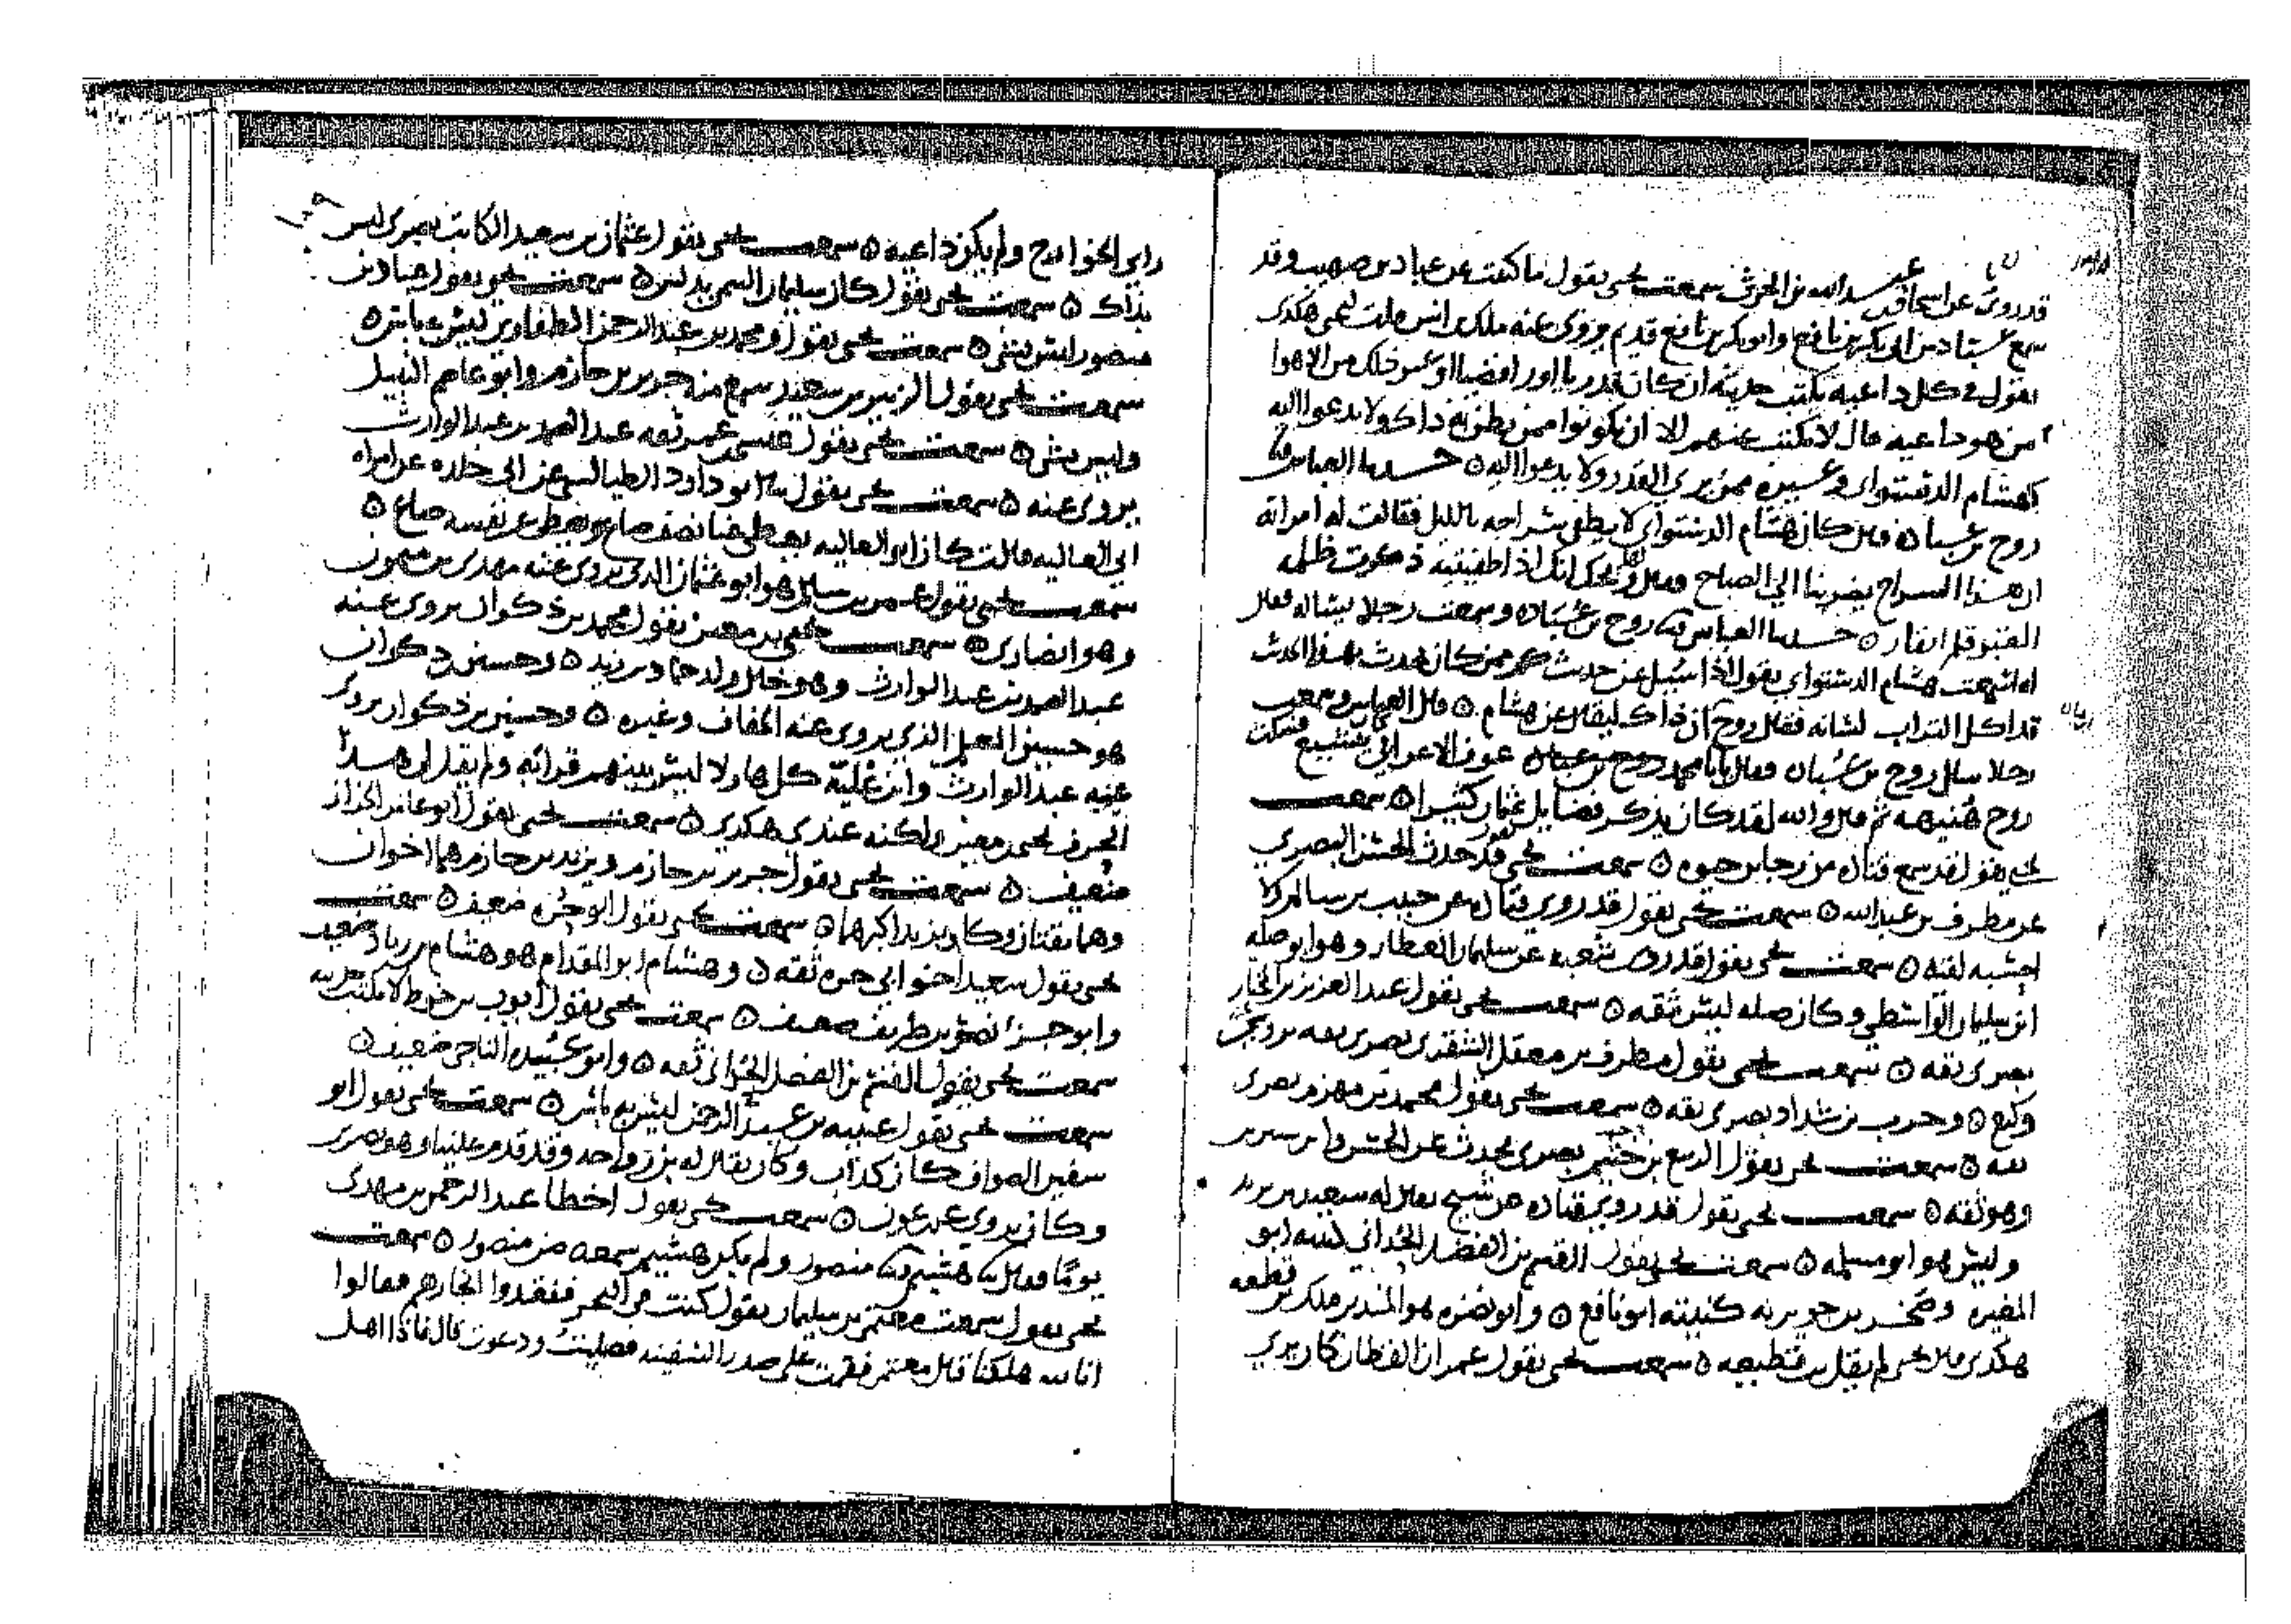 قد روى عن اسحاق عبد الله بن الحرث سمعت يحيى يقول ما كتبت عن عباد بن صهيب وقد
سمع عباد من ابي بكر بن نافع وابو بكر بن نافع قديم يروى عنه ملك بن انس قلت ليحيى هكذى
يقول في كل داعيه يكتب حديثه ان كان قدريا او رافضيا او غير ذلك من الاهوا
من هو داعيه قال لا يكتب عنهم الا ان يكونوا ممن يظن به ذاك ولا يدعوا اليه
كهشام الدستوائي وغيره ممن يرى القدر ولا يدعوا اليه ٥ حدثنا العباس ثنا
روح بن عباده قال كان هشام الدستوائي لا يطفي سراجه بالليل فقالت له امراته
ان هذا السراج يضر بنا الى الصباح فقال ويحك انك اذا اطفيتيه ذكرت ظلمه
القبر فلم اتقار ٥ حدثنا العباس ثنا روح بن عباده وسمعت رجلا يساله فقال
له سمعت هشام الدستوائي يقول اذا سئيل عن حديث ممن كان يحدث بهذا الحديث
قد اكل التراب لسانه فقال روح ان ذاك ليقال عن هشام ٥ قال العباس وسمعت
رجلا سال روح بن عباده فقال يابا محمد كان عوف الاعرابي يتشيع فسكت
روح هنيهه ثم قال والله لقد كان يذكر فضايل عثمان كثيرا ٥ سمعت
يحيى يقول لقد سمع قتاده من رجا بن حيوه ٥ سمعت يحيى يقول قد حدث الحسن البصري
عن مطرف بن عبد الله ٥ سمعت يحيى يقول قد روى قتاده عن حبيب بن سالم كلا
احسبه لقيه ٥ سمعت يحيى يقول قد روى شعبه عن سليمان العطار وهو ابو صله
ابن سليمان الواسطي وكان صله ليس ثقه ٥ سمعت يحيى يقول عبد العزيز بن المختار
بصري ثقه ٥ سمعت يحيى يقول مطرف بن معقل الشقري بصرى ثقه يروى عنه
وكيع ٥ وحرب بن شداد بصرى ثقه ٥ سمعت يحيى يقول محمد بن مهزم بصرى
ثقه ٥ سمعت يحيى يقول الربيع بن خثيم بصرى يحدث عن الحسن وابن سيرين
وهو ثقه ٥ سمعت يحيى يقول قد روى قتاده عن شيخ يقال له سعيد بن يزيد
وليس هو ابو مسلمه ٥ سمعت يحيى يقول القسم بن الفضل الحداني كنيته ابو
المغيره وصخر بن جويريه كنيته ابو نافع ٥ وابو نضره هو المنذر بن ملك بن قطعه
هكذى قال يحيى لم يقل بن قطيعه ٥ سمعت يحيى يقول عمران القطان كان يرى
راى الخوارج ولم يكن داعيه ٥ سمعت يحيى يقول عثمان بن سعيد الكاتب بصرى ليس
بذاك ٥ سمعت يحيى يقول كان سليمان التيمي يدلس ٥ سمعت يحيى يقول عباد بن
منصور ليس بشى ٥ سمعت يحيى يقول ومحمد بن عبد الرحمن الطفاوي ليس به باس ٥
سمعت يحيى يقول الزبير بن سعيد سمع منه جرير بن حازم وابو عاصم النبيل
وليس بشى ٥ سمعت يحيى يقول عنبس بن عمير ثقه عبد الصمد بن عبد الوارث
يروى عنه ٥ سمعت يحيى يقول ثنا ابو داود الطيالسي عن ابي خلده عن امراه
ابي العاليه قالت كان ابو العاليه يعطي عنا نصف صاع ويعطى عن نفسه صاع ٥
سمعت يحيى يقول عمرو بن سالم هو ابو عثمان الذى يروى عنه مهدى بن ميمون
وهو انصارى ٥ سمعت يحيى بن معين يقول محمد بن ذكوان يروى عنه
عبد الصمد بن عبد الوارث وهو خال ولد حماد بن زيد ٥ وحسين بن ذكوان
هو حسين المعلم الذي يروى عنه الخفاف وغيره ٥ وحسين بن ذكوان يروى
عنه عبد الوارث وابن عليه كل هاولا ليس بينهم قرابه ولم يقل لي هذا
الحرف يحيى بن معين ولكنه عندى هكذى ٥ سمعت يحيى يقول ابو عامر الخزاز
ضعيف ٥ سمعت يحيى يقول جرير بن حازم ويزيد بن حازم هما اخوان
وهما ثقتان وكان يزيد اكبرهما ٥ سمعت يحيى يقول ابو حره ضعيف ٥ سمعت
يحيى يقول سعيد اخو ابي حره ثقه ٥ وهشام ابو المقدام هو هشام بن زياد ضعيف
وابو جزء نصر بن طريف ضعيف ٥ سمعت يحيى يقول ايوب بن خوط لا يكتب حديثه
سمعت يحيى يقول القسم بن الفضل الحداني ثقه ٥ وابو عبيده الناجي ضعيف ٥
سمعت يحيى يقول عيينه بن عبد الرحمن ليس به باس ٥ سمعت يحيى يقول ابو
سفين الصواف كان كذاب وكان يقال له بزر واحد وقد قدم علينا وهو بصرى
وكان يروى عن عوف ٥ سمعت يحيى يقول اخطا عبد الرحمن بن مهدى
يوما فقال ثنا هشيم ثنا منصور ولم يكن هشيم سمعه من منصور ٥ سمعت
يحيى يقول سمعت معتمر بن سليمان يقول كنت في البحر ففقدوا الخارهم فقالوا
انا لله هلكنا قال معتمر فقمت على صدر السفينه فصليت ودعوت قال فاذا اهل